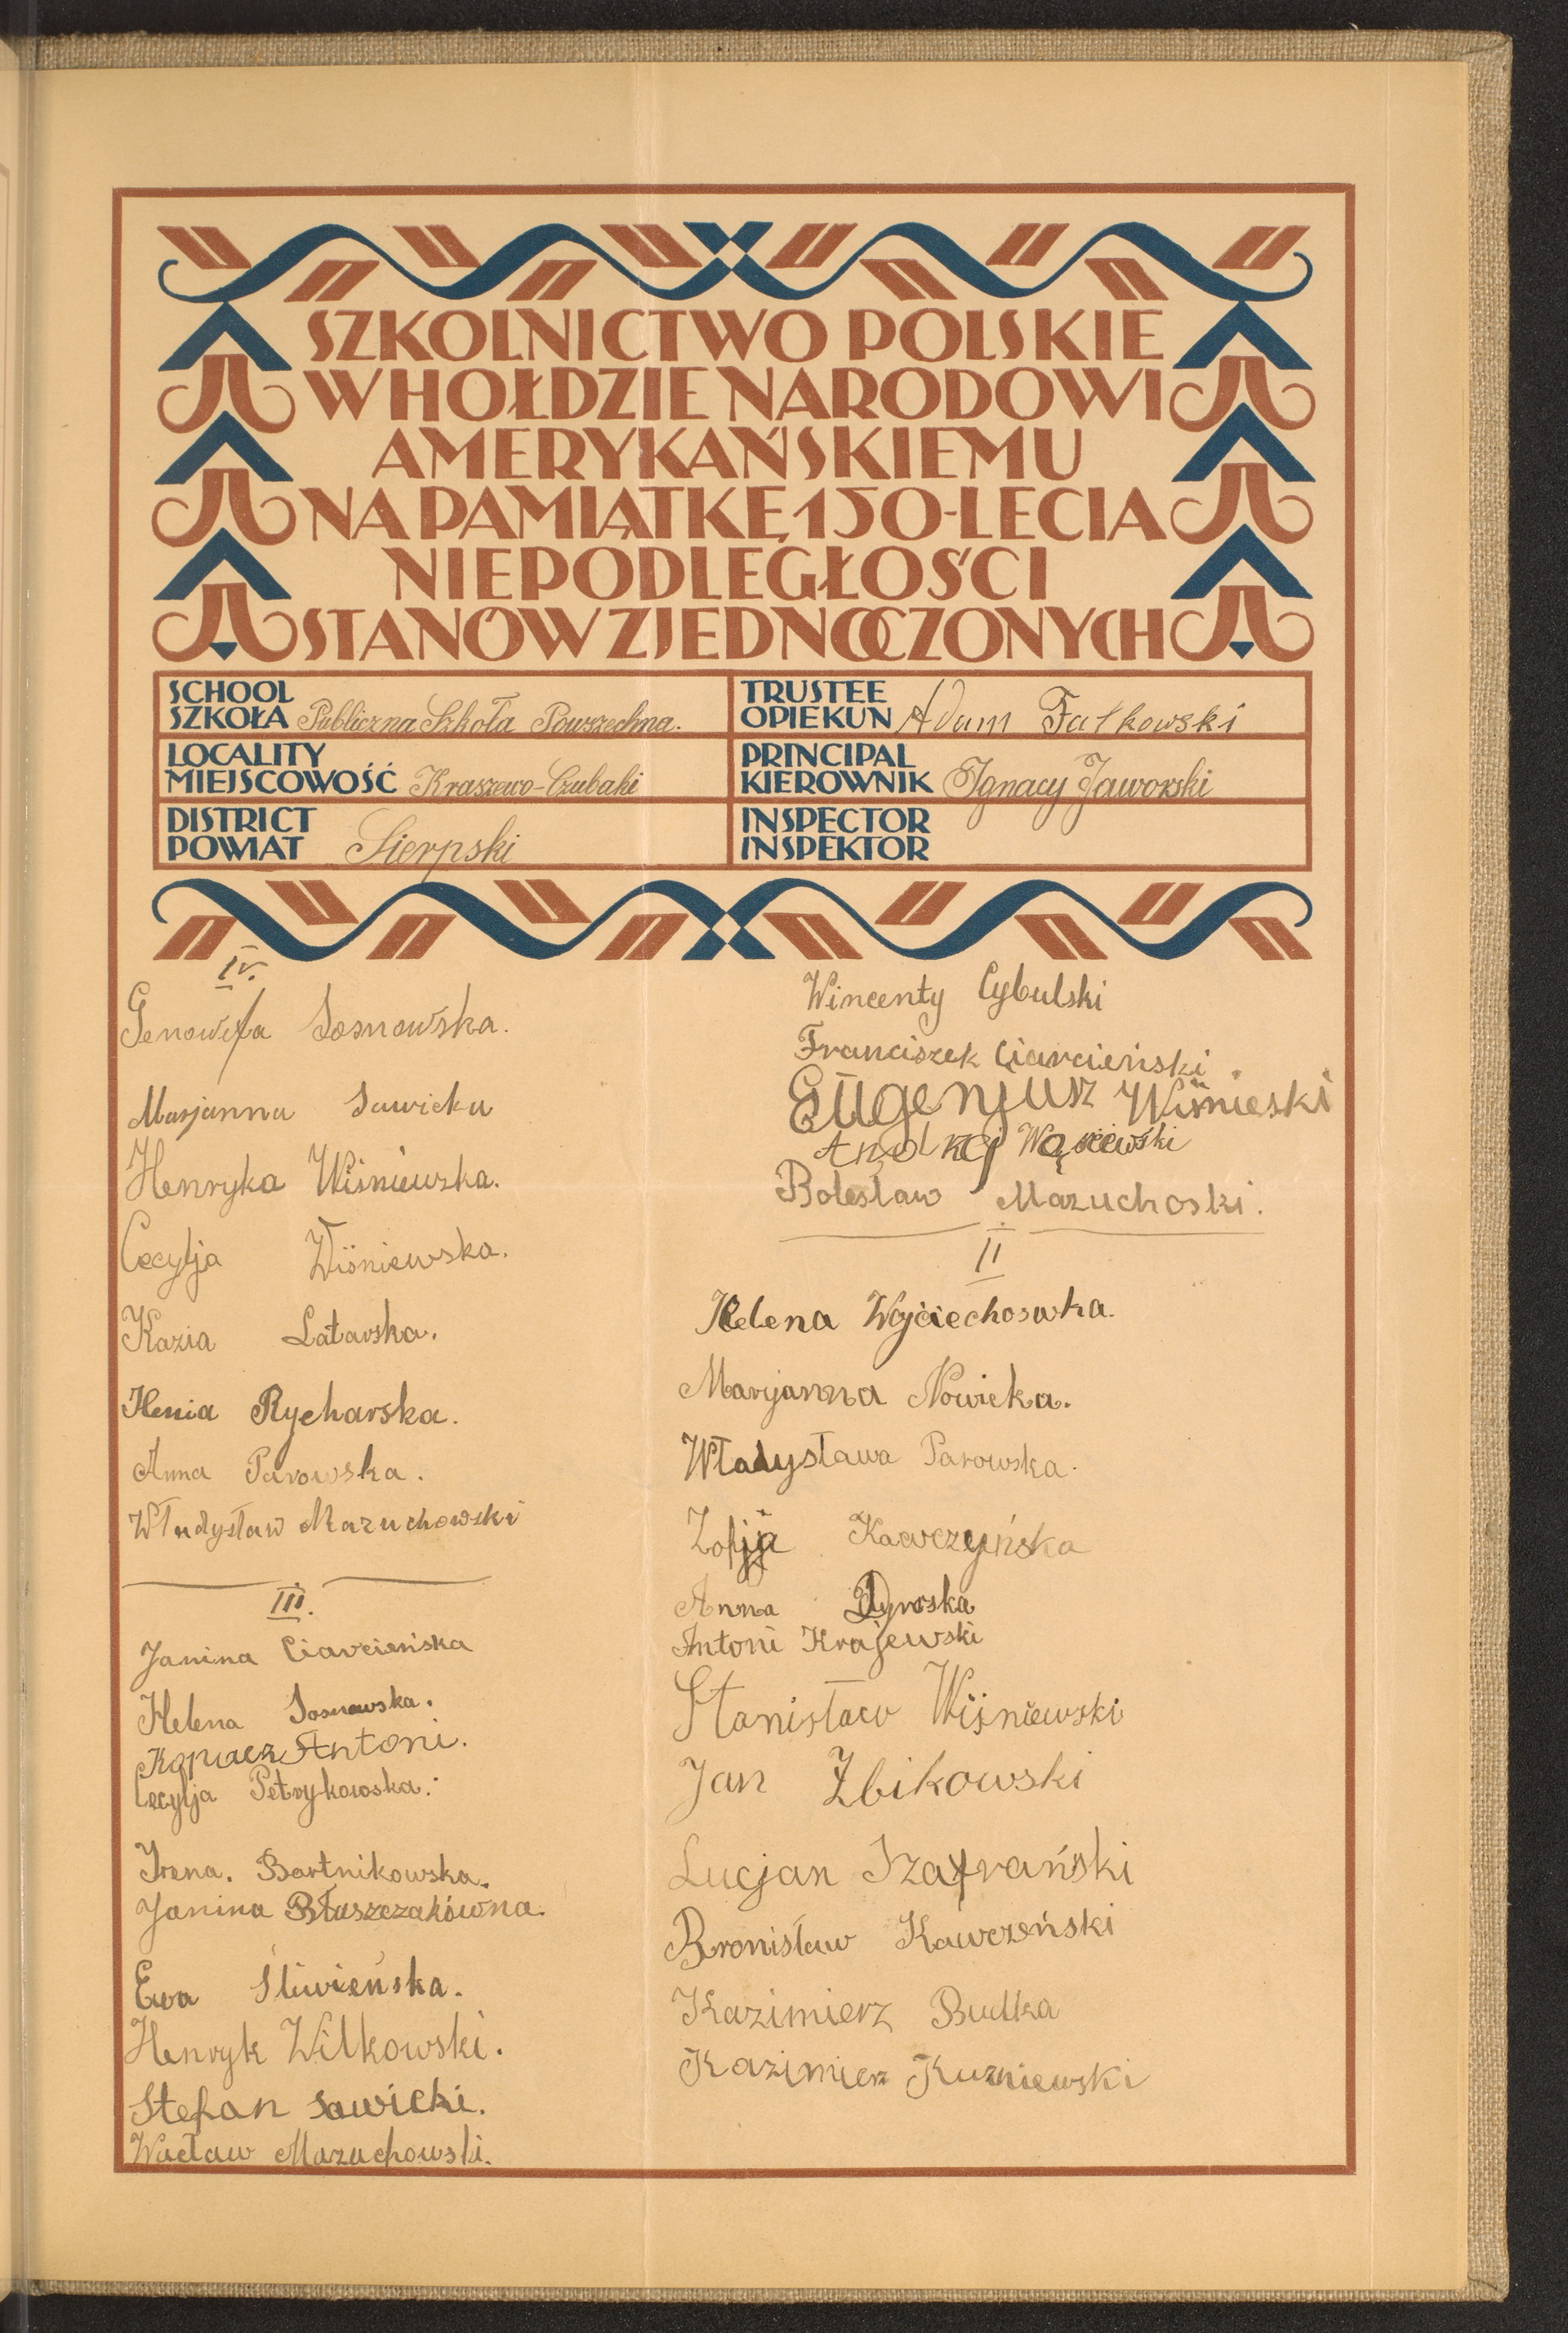 SZKOLNICTWO POLSKIE
W HOŁDZIE NARODOWI
AMERYKAŃSKIEMU
NA PAMIĄTKĘ 150-LECIA
NIEPODLEGŁOŚCI
STANÓW ZJEDNOCZONYCH
SCHOOL
SZKOŁA Publiczna Szkoła Powszechna.
TRUSTEE
OPIEKUN Adam Fatkowski
LOCALITY
MIEJSCOWOŚĆ Kraszewo-Czubaki
PRINCIPAL
KIEROWNIK Ignacy Jaworski
DISTRICT
POWIAT Sierpski
INSPECTOR
INSPEKTOR
IV.
Genowefa Sosnowska.
Marjanna Sawicka
Henryka Wiśniewska.
Cecylja Wiśniewska.
Kazia Latarska.
Henia Rycharska.
Anna Parowska.
Władysław Mazuchowski
III.
Janina Ciarcieńska
Helena Sosnowska.
Kopacz Antoni.
Cecylja Petrykowska.
Irena. Bartnikowska.
Janina Błaszczakówna.
Ewa Śliwieńska.
Henryk Wilkowski.
Stefan Sawicki.
Wacław Mazuchowski.
Wincenty Cybulski
Franciszek Ciarcieński
Eugenjusz Wiśnieski
Andrzej
Bolesław Mazuchoski.
II
Helena Wojciechoswka.
Maryjanna Nowicka.
Władysława Parowska.
Zofja Kawczyńska
Anna
Antoni Krajewski
Stanisław Wiśniewski
Jan Żbikowski
Lucjan Szafrański
Bronisław Kawczeński
Kazimierz Budka
Kazimierz Kuzniewski